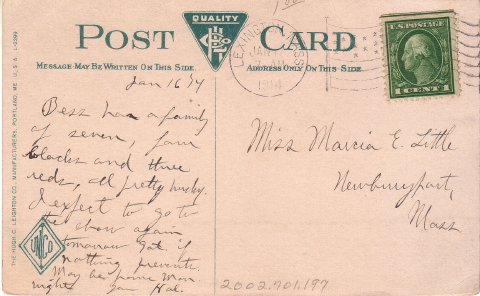 POST CARD
QUALITY
MESSAGE MAY BE WRITTEN ON THIS SIDE
ADDRESS ONLY ON THIS SIDE
LEXINGTON
MASS
JAN
1914
U.S. POSTAGE
1 CENT 1
Jan 16 '14
Bess has a family
of seven, four
blacks and three
reds, all pretty husky.
I expect to go to
the show again
tomorrow Sat. if
nothing prevents.
May be home Mon.
night Hal.
Miss Marcia E. Little
Newburyport,
Mass
UNICO
THE HUGH C. LEIGHTON CO., MANUFACTURERS, PORTLAND, ME., U.S.A.
2002.701.197